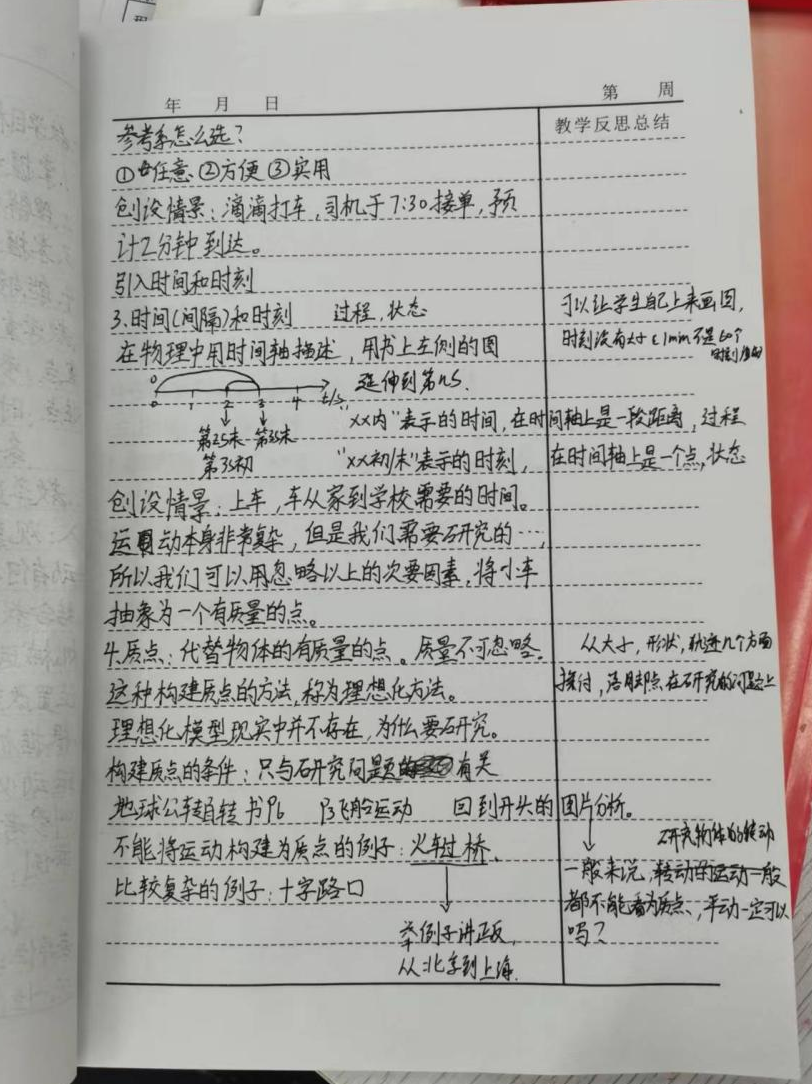 年 月 日
第 周
教学反思总结
参考系怎么选？
①任意 ②方便 ③实用
创设情景：滴滴打车，司机于7:30接单，预
计2分钟到达。
引入时间和时刻
3.时间(间隔)和时刻 过程，状态
可以让学生自己上来画图，
在物理中用时间轴描述，用书上左侧的图
时刻没有大小 1min不是60个
时刻
延伸到第ns.
0 1 2 3 4 t/s
第2s末 第3s末
第3s初
"xx内"表示的时间，在时间轴上是一段距离，过程
"xx初/末"表示的时刻，在时间轴上是一个点，状态
创设情景：上车，车从家到学校需要的时间。
运动本身非常复杂，但是我们需要研究的…，
所以我们可以用忽略以上的次要因素，将小车
抽象为一个有质量的点。
4.质点：代替物体的有质量的点。质量不可忽略。
从大小，形状，轨迹几个方面
这种构建质点的方法，称为理想化方法。
探讨，落脚点在研究的问题上
理想化模型现实中并不存在，为什么要研究。
构建质点的条件：只与研究问题有关
地球公转自转 书P6 P3飞船运动 回到开头的图片分析。
研究物体的转动
不能将运动构建为质点的例子：火车过桥、
一般来说，转动的运动一般
都不能看为质点，平动一定可以
吗？
比较复杂的例子：十字路口
举例子讲正反，
从北京到上海.